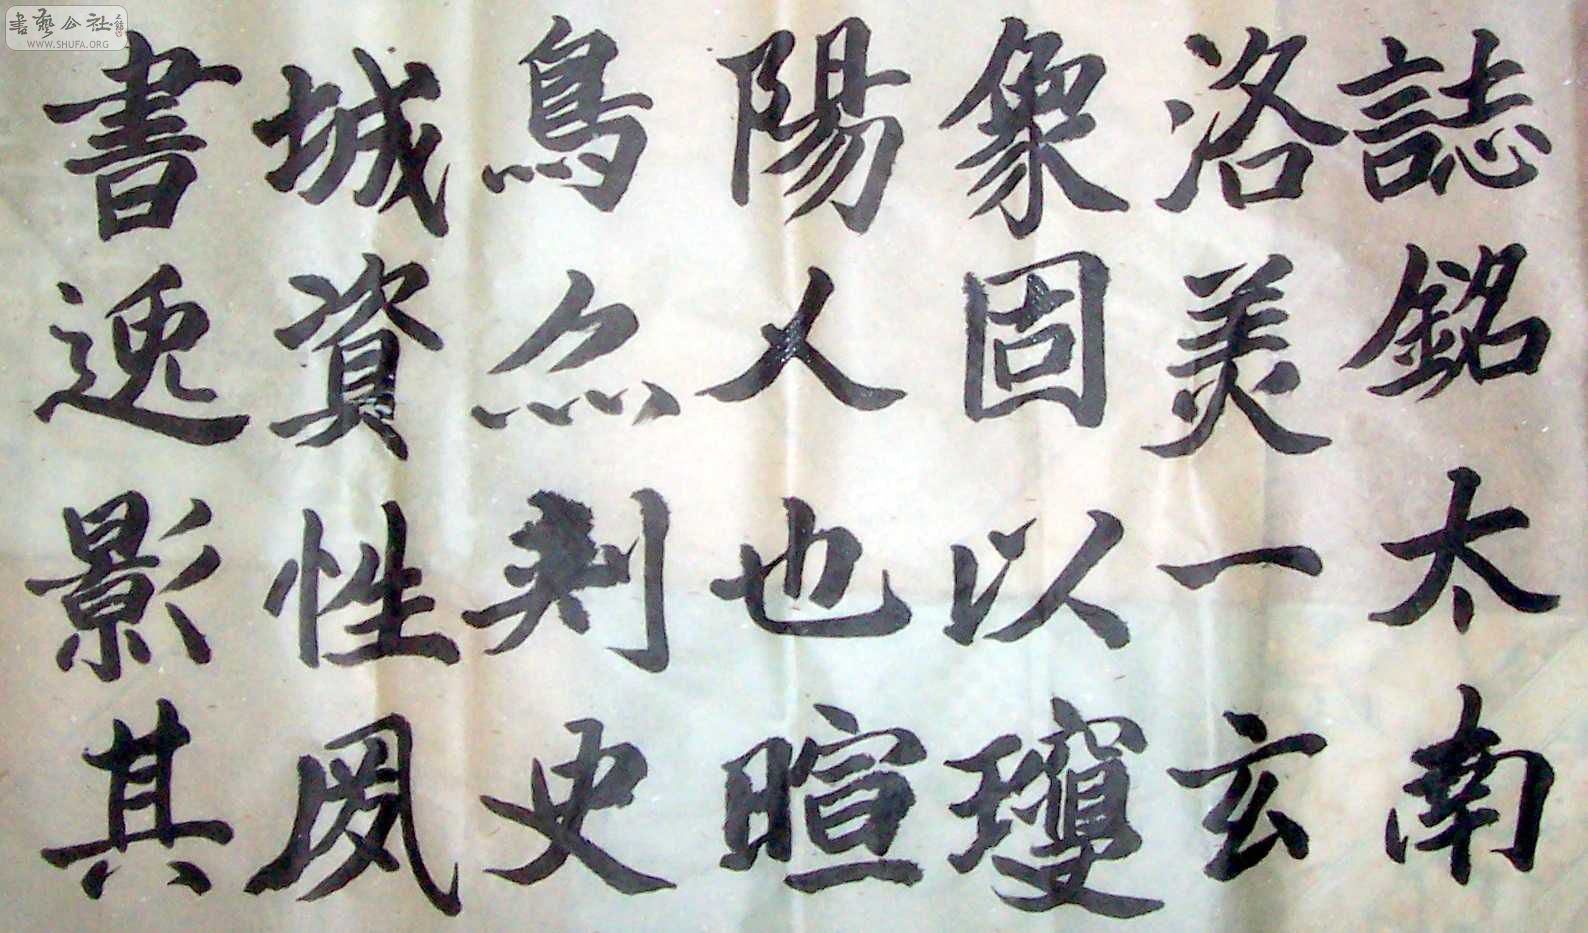 誌銘太南
洛羙一玄
象固以瓊
陽人也暄
鳥𤋳刺史
城資性夙
書逸影其
書藝公社
WWW.SHUFA.ORG